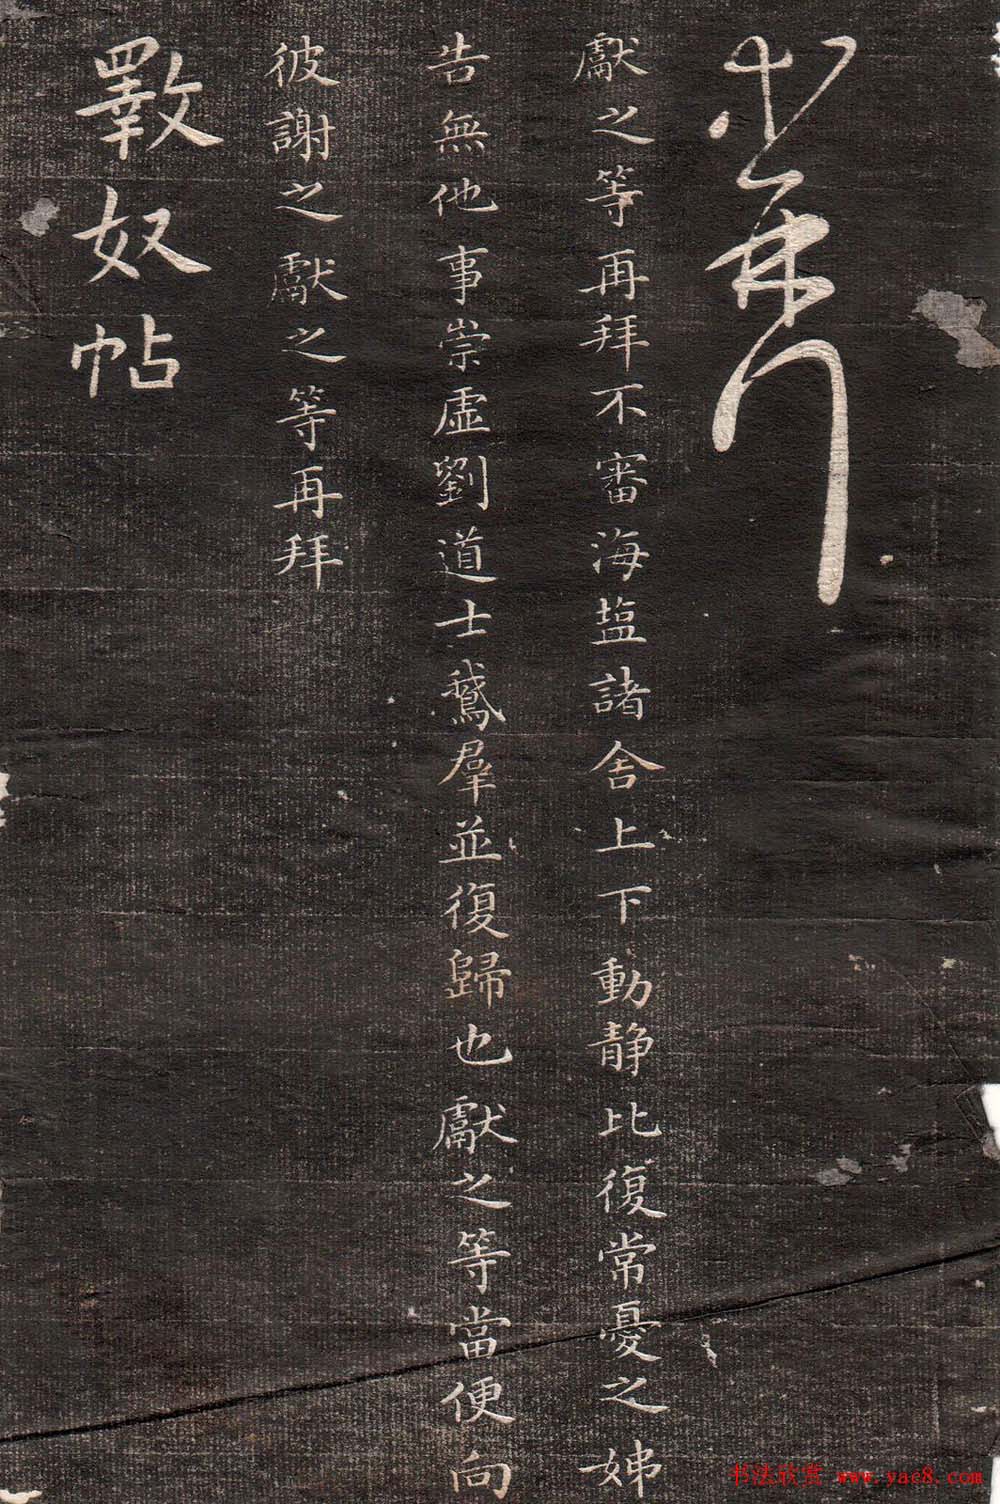 獻之等再拜不審海塩諸舍上下動静比復常憂之姊
告無他事崇虛劉道士鵝羣並復歸也獻之等當便向
彼謝之獻之等再拜
奴帖
书法欣赏 www.yac8.com